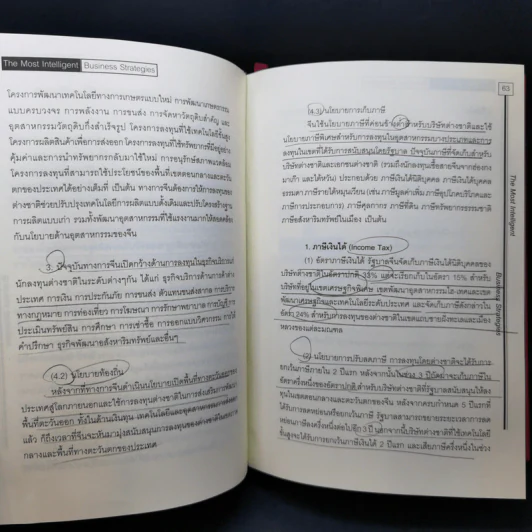 The Most Intelligent Business Strategies
โครงการพัฒนาเทคโนโลยีทางการเกษตรแบบใหม่ การพัฒนาเกษตรกรรม
แบบครบวงจร การพลังงาน การขนส่ง การจัดหาวัตถุดิบสำคัญ และ
อุตสาหกรรมวัตถุดิบกึ่งสำเร็จรูป โครงการลงทุนที่ใช้เทคโนโลยีชั้นสูง
โครงการผลิตสินค้าเพื่อการส่งออก โครงการลงทุนที่ใช้ทรัพยากรที่มีอยู่อย่าง
คุ้มค่าและการนำทรัพยากรกลับมาใช้ใหม่ การอนุรักษ์สภาพแวดล้อม
โครงการลงทุนที่สามารถใช้ประโยชน์ของพื้นที่เขตตอนกลางและตะวัน
ตกของประเทศได้อย่างเต็มที่ เป็นต้น ทางการจีนต้องการให้การลงทุนของ
ต่างชาติช่วยปรับปรุงเทคโนโลยีการผลิตแบบดั้งเดิมและปรับโครงสร้างฐาน
การผลิตแบบเก่า รวมทั้งพัฒนาอุตสาหกรรมที่ใช้แรงงานมากให้สอดคล้อง
กับนโยบายด้านอุตสาหกรรมของจีน
3. ปัจจุบันทางการจีนเปิดกว้างด้านการลงทุนในธุรกิจบริการแก่
นักลงทุนต่างชาติในระดับต่างๆกัน ได้แก่ ธุรกิจบริการด้านการค้าต่าง
ประเทศ การเงิน การประกันภัย การขนส่ง ตัวแทนขนส่งสลาก การบริการ
ทางกฎหมาย การท่องเที่ยว การโฆษณา การรักษาพยาบาล การบัญชี การ
ประเมินทรัพย์สิน การศึกษา การเช่าซื้อ การออกแบบวิศวกรรม การให้
คำปรึกษา ธุรกิจพัฒนาอสังหาริมทรัพย์และอื่นๆ
(4.2) นโยบายท้องถิ่น
หลังจากที่ทางการจีนดำเนินนโยบายเปิดพื้นที่ทางตะวันออกของ
ประเทศสู่โลกภายนอกและใช้การลงทุนของต่างชาติในการส่งเสริมการพัฒนา
พื้นที่ตะวันออก ทั้งในด้านเงินทุน เทคโนโลยีและอุตสาหกรรม
แล้ว ก็ถึงเวลาที่จีนจะหันมามุ่งสนับสนุนการลงทุนของต่างชาติในเขตตอน
กลางและพื้นที่ทางตะวันตกของประเทศ
63
The Most Intelligent
Business Strategies
(4.3) นโยบายการเก็บภาษี
จีนใช้นโยบายภาษีที่ค่อนข้างต่ำสำหรับบริษัทต่างชาติและใช้
นโยบายภาษีพิเศษสำหรับการลงทุนในอุตสาหกรรมบางประเภทและการ
ลงทุนในเขตที่ได้รับการสนับสนุนโดยรัฐบาล ปัจจุบันภาษีที่จัดเก็บสำหรับ
บริษัทต่างชาติและเอกชนต่างชาติ (รวมถึงนักลงทุนเชื้อสายจีนจากฮ่องกง
มาเก๊า และไต้หวัน) ประกอบด้วย ภาษีเงินได้นิติบุคคล ภาษีเงินได้บุคคล
ธรรมดา ภาษีรายได้หมุนเวียน (เช่น ภาษีมูลค่าเพิ่ม ภาษีอุปโภคบริโภคและ
ภาษีการประกอบการ) ภาษีศุลกากร ภาษีที่ดิน ภาษีทรัพยากรธรรมชาติ
ภาษีอสังหาริมทรัพย์ในเมือง เป็นต้น
1. ภาษีเงินได้ (Income Tax)
(1) อัตราภาษีเงินได้ รัฐบาลจีนจัดเก็บภาษีเงินได้นิติบุคคลของ
บริษัทต่างชาติในอัตราปรกติ 33% แต่จะเรียกเก็บในอัตรา 15% สำหรับ
บริษัทที่อยู่ในเขตเศรษฐกิจพิเศษ เขตพัฒนาอุตสาหกรรมไฮ-เทคและเขต
พัฒนาเศรษฐกิจและเทคโนโลยีระดับประเทศ และจัดเก็บภาษีดังกล่าวใน
อัตรา 24% สำหรับการลงทุนของต่างชาติในเขตแถบชายฝั่งทะเลและเมือง
หลวงของแต่ละมณฑล
(2) นโยบายการปรับลดภาษี การลงทุนโดยต่างชาติจะได้รับการ
ยกเว้นภาษีภายใน 2 ปีแรก หลังจากนั้นในช่วง 3 ปีถัดมาจะเก็บภาษีใน
อัตราครึ่งหนึ่งของอัตราปกติ สำหรับบริษัทต่างชาติที่รัฐบาลสนับสนุนให้ลง
ทุนในเขตตอนกลางและตะวันตกของจีน หลังจากครบกำหนด 5 ปีแรกที่
ได้รับการลดหย่อนหรือยกเว้นภาษี รัฐบาลสามารถขยายระยะเวลาการลด
หย่อนภาษีลงครึ่งหนึ่งต่อไปอีก 3 ปี นอกจากนี้บริษัทต่างชาติที่ใช้เทคโนโลยี
ชั้นสูงจะได้รับการยกเว้นภาษีเงินได้ 2 ปีแรก และเสียภาษีครึ่งหนึ่งในช่วง